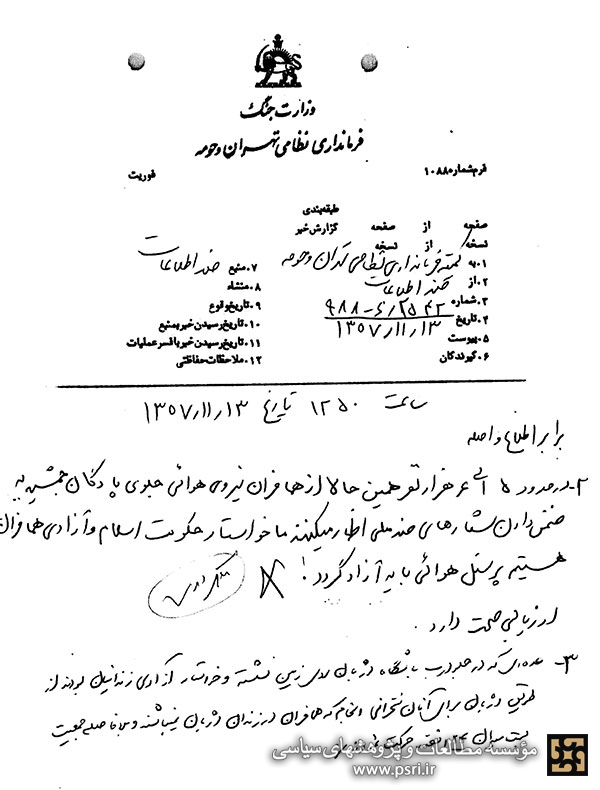 وزارت جنگ
فرمانداری نظامی تهران و حومه
فرم شماره ۱۰۸۸
فوریت
طبقه‌بندی
صفحه از صفحه گزارش خبر
نسخه از نسخه
۱. به کمیته فرمانداری نظامی تهران و حومه
۲. از ضد اطلاعات
۳. شماره
۴. تاریخ ۱۳۵۷/۱۱/۱۳
۵. پیوست
۶. گیرندگان
۷. منبع ضد اطلاعات
۸. منشاء
۹. تاریخ وقوع
۱۰. تاریخ رسیدن خبر بمنبع
۱۱. تاریخ رسیدن خبر بافسر عملیات
۱۲. ملاحظات حفاظتی
ساعت ۱۲۵۰ تاریخ ۱۳۵۷/۱۱/۱۳
برابر اطلاع واصله
۲- در حدود ۵ الی ۶ هزار نفر همین حالا از همافران نیروی هوائی جلوی پادگان جمشیدیه
ضمن دادن شعارهای ضد ملی اظهار میکنند ما خواستار حکومت اسلام و آزادی همافران
هستیم پرسنل هوائی باید آزاد گردد!
ارزیابی صحت دارد.
۳- عده‌ای که در جلو درب باشگاه دژبان روی زمین نشسته و خواستار آزادی زندانیان بودند از
طریق دژبان برای آنان سخنرانی و همافران در زندان دژبان نمیباشند و بلافاصله جمعیت
حرکت
مؤسسه مطالعات و پژوهشهای سیاسی
www.psri.ir